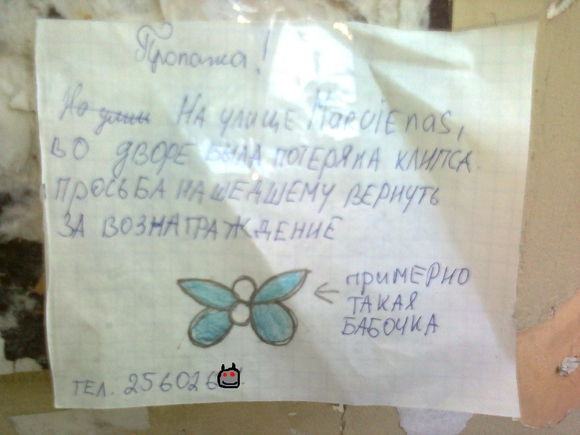 Пропажа!
На улице НА УЛИЦЕ MARCIENAS,
ВО ДВОРЕ БЫЛА ПОТЕРЯНА КЛИПСА
ПРОСЬБА НАШЕДШЕМУ ВЕРНУТЬ
ЗА ВОЗНАГРАЖДЕНИЕ
← ПРИМЕРНО
ТАКАЯ
БАБОЧКА
ТЕЛ. 256026